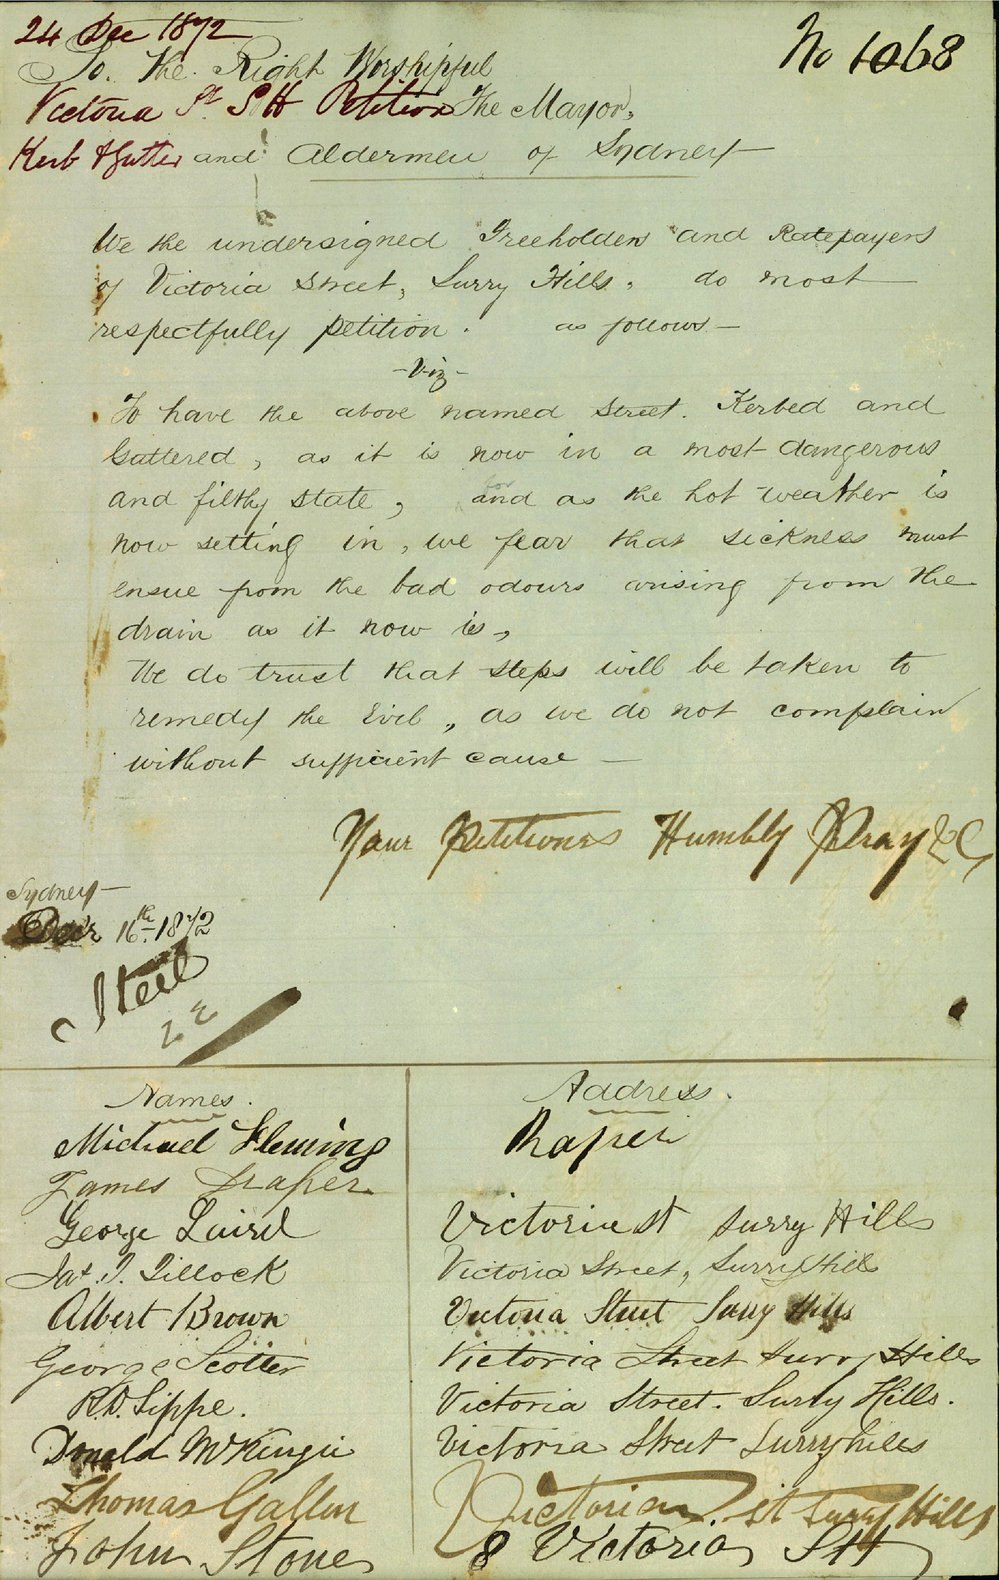 24 Dec 1872
No 1068
To. The. Right Worshipful
Victoria St. S H Petition The Mayor,
Kerb & Gutter and Aldermen of Sydney
We the undersigned Freeholders and Ratepayers
of Victoria Street, Surry Hills. do most
respectfully petition. as follows —
- Viz -
To have the above named street. Kerbed and
Guttered, as it is now in a most dangerous
and filthy state, and as the hot weather is
now setting in, we fear that sickness must
ensue from the bad odours arising from the
drain as it now is,
We do trust that steps will be taken to
remedy the Evil, as we do not complain
without sufficient cause —
Your Petitioners Humbly Pray &C
Sydney —
Decr 16th 1872
Names.
Address.
Michael Fleming
James Draper
George Laird
Victoria St Surry Hills
Jas. I. Tillock
Victoria Street, Surry Hills
Albert Brown
Victoria Street Surry Hills
George Scotter
Victoria Street Surry Hills
R.D. Sippe.
Victoria Street. Surry Hills.
Donald McKenzie
Victoria Street Surryhills
Thomas Gallen
Victoria St Surry Hills
John Stone
8 Victoria St